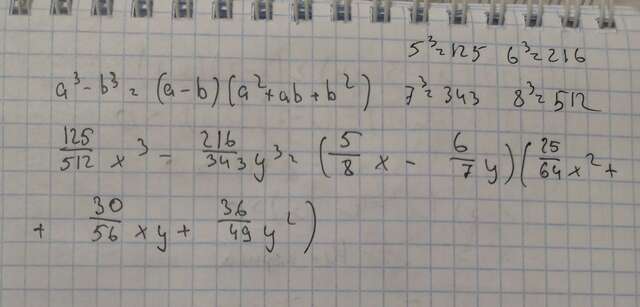 5³=125 6³=216
a³-b³=(a-b)(a²+ab+b²) 7³=343 8³=512
125/512 x³ - 216/343 y³=(5/8 x - 6/7 y)(25/64 x²+
+ 30/56 xy + 36/49 y²)